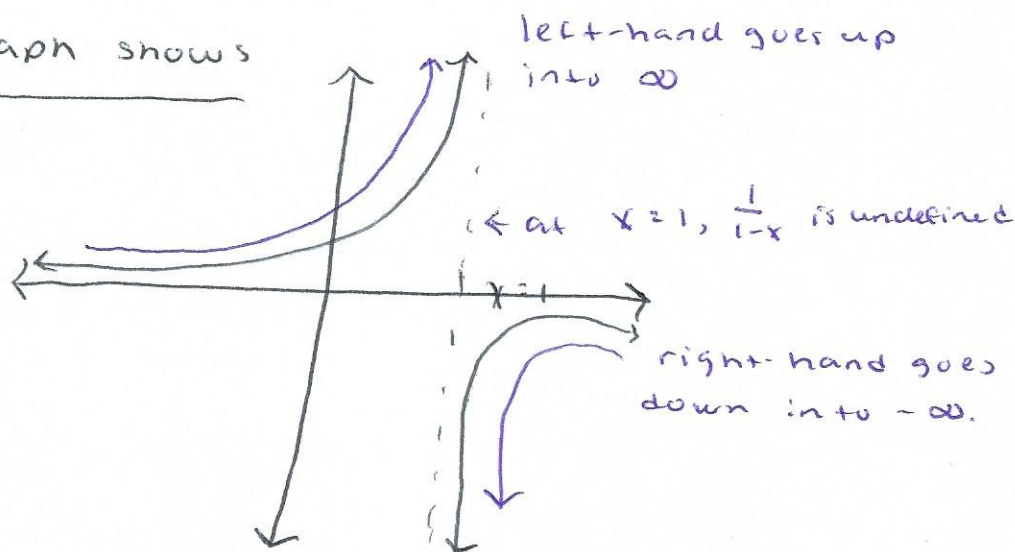 aph shows
left-hand goes up
into ∞
← at x = 1, 1/1-x is undefined
x = 1
right-hand goes
down into - ∞.